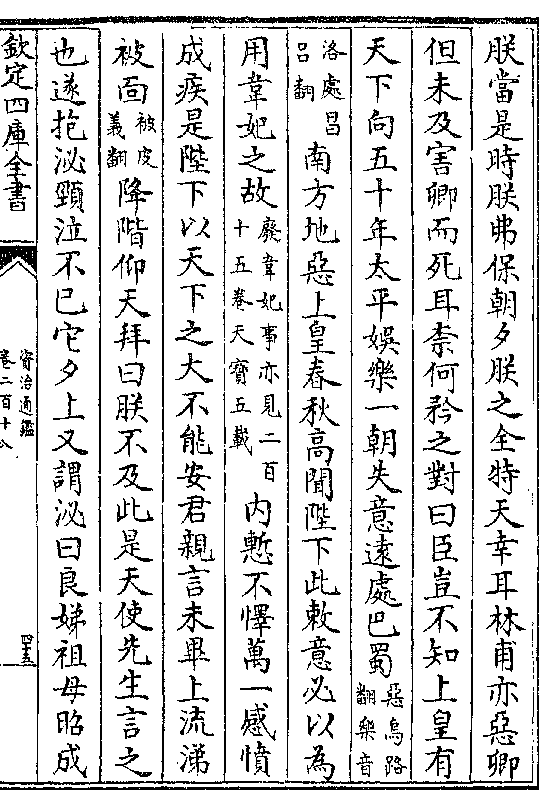 朕當是時朕弗保朝夕朕之全特天幸耳林甫亦惡卿
但未及害卿而死耳柰何矜之對曰臣豈不知上皇有
天下向五十年太平娛樂一朝失意遠處巴蜀惡烏路翻樂音
洛處昌呂翻南方地惡上皇春秋高聞陛下此敕意必以為
用韋妃之故廢韋妃事亦見二百十五卷天寶五載内慙不懌萬一感憤
成疾是陛下以天下之大不能安君親言未畢上流涕
被面被皮義翻降階仰天拜曰朕不及此是天使先生言之
也遂抱泌頸泣不已它夕上又謂泌曰良娣祖母昭成
欽定四庫全書
資治通鑑
卷二百十八
四十五